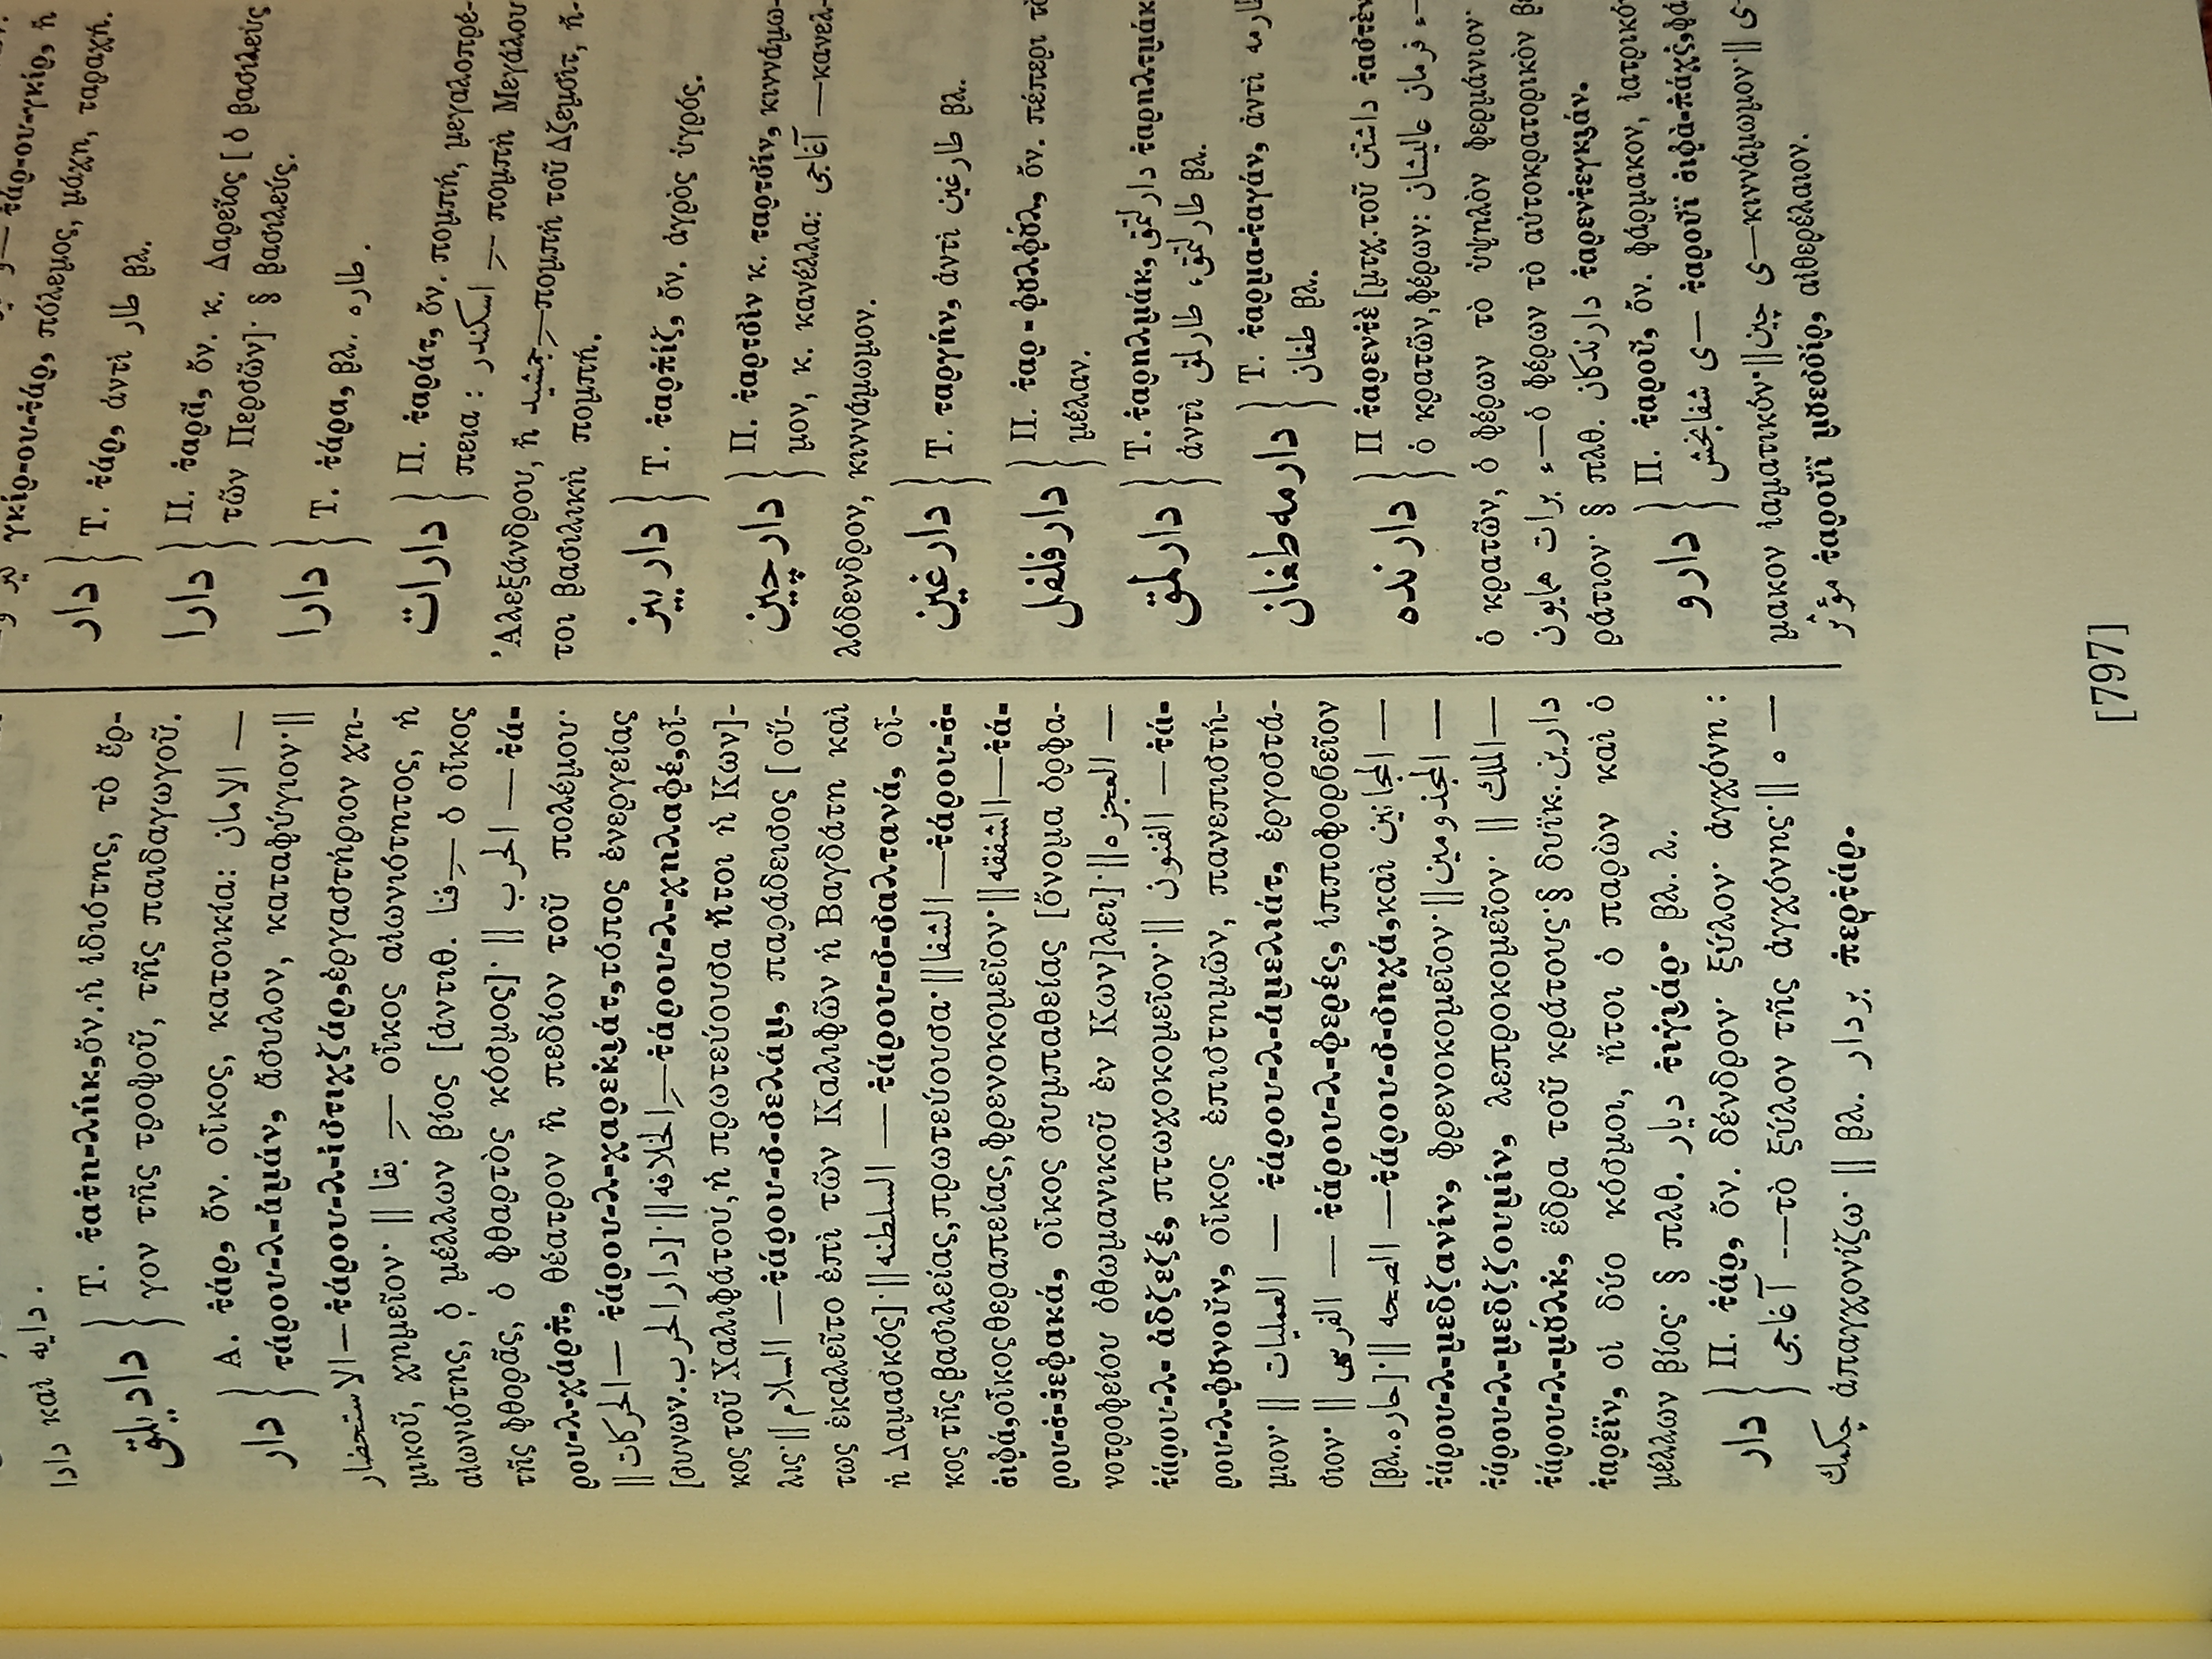 دادا καὶ دايه .
دادىلق Τ. τατη-λήκ, ὄν. ἡ ἰδιότης, τὸ ἔρ-
γον τῆς τροφοῦ, τῆς παιδαγωγοῦ.
دار Α. τάρ, ὄν. οἶκος, κατοικία: الامان —
τάρου-λ-ἀμάν, ἄσυλον, καταφύγιον· ||
الاستحضار — τάρου-λ-ἰστιχζάρ, ἐργαστήριον χη-
μικοῦ, χημεῖον. || بقا — οἶκος αἰωνιότητος, ἡ
αἰωνιότης, ὁ μέλλων βίος [ἀντιθ. فنا — ὁ οἶκος
τῆς φθορᾶς, ὁ φθαρτὸς κόσμος]. || الحرب — τά-
ρου-λ-χάρπ, θέατρον ἢ πεδίον τοῦ πολέμου·
|| الحركات — τάρου-λ-χαρεκιάτ, τόπος ἐνεργείας
[συνων. دار الحرب]. || الخلافه — τάρου-λ-χηλαφέ, οἶ-
κος τοῦ Χαλιφάτου, ἡ πρωτεύουσα ἤτοι ἡ Κων]-
λις. || السلام — τάρου-σ-σελάμ, παράδεισος [οὕ-
τως ἐκαλεῖτο ἐπὶ τῶν Καλιφῶν ἡ Βαγδάτη καὶ
ἡ Δαμασκός]. || السلطنه — τάρου-σ-σαλτανά, οἶ-
κος τῆς βασιλείας, πρωτεύουσα. || الشفا — τάρου-σ-
σιφά, οἶκος θεραπείας, φρενοκομεῖον. || الشفقه — τά-
ρου-σ-σεφακά, οἶκος συμπαθείας [ὄνομα ὀρφα-
νοτροφείου ὀθωμανικοῦ ἐν Κων]λει]. || العجزه —
τάρου-λ-ἀδζεζέ, πτωχοκομεῖον. || الفنون — τά-
ρου-λ-φυνούν, οἶκος ἐπιστημῶν, πανεπιστή-
μιον. || العمليات — τάρου-λ-ἀμελιάτ, ἐργοστά-
σιον. || الفرس — τάρου-λ-φερές, ἱπποφορβεῖον
[βλ. حاره]. || الصحه — τάρου-σ-σηχά, καὶ المجانين —
τάρου-λ-μεδζανίν, φρενοκομεῖον. || المجذومين —
τάρου-λ-μεδζζουμίν, λεπροκομεῖον. || الملك —
τάρου-λ-μύλκ, ἕδρα τοῦ κράτους. § δυϊκ. دارين
ταρέϊν, οἱ δύο κόσμοι, ἤτοι ὁ παρὼν καὶ ὁ
μέλλων βίος. § πλθ. ديار τιγιάρ. βλ. λ.
دار Π. τάρ, ὄν. δένδρον. ξύλον. ἀγχόνη:
آغاجى — τὸ ξύλον τῆς ἀγχόνης. || ه —
چكمك ἀπαγχονίζω. || βλ. بردار περτάρ.
γκίρ-ου-τάρ, πόλεμος, μάχη, ταραχή.
دار Τ. τάρ, ἀντὶ طار βλ.
دارا Π. ταρᾶ, ὄν. κ. Δαρεῖος [ὁ βασιλεὺς
τῶν Περσῶν]. § βασιλεύς.
دارا Τ. τάρα, βλ. طاره .
دارات Π. ταράτ, ὄν. πομπή, μεγαλοπρέ-
πεια : اسكندر — πομπὴ Μεγάλου
Ἀλεξάνδρου, ἢ جمشيد — πομπὴ τοῦ Δζεμσίτ, ἤ-
τοι βασιλικὴ πομπή.
دارپيز Τ. ταρπίζ, ὄν. ἀγρὸς ὑγρός.
دارچين Π. ταρτσὶν κ. ταρτσίν, κιννάμω-
μον, κ. κανέλλα: آغاجى — κανελ-
λόδενδρον, κιννάμωμον.
دارغين Τ. ταργήν, ἀντὶ طارغين βλ.
دارفلفل Π. ταρ-φυλφύλ, ὄν. πέπερι τὸ
μέλαν.
دارلمق Τ. ταρηλμάκ, دارلتمق ταρηλτμάκ
ἀντὶ طارلمق, طارلتمق βλ.
دارمه‌طغان Τ. ταρμα-ταγάν, ἀντὶ طارمه
طغان βλ.
دارنده Π ταρεντὲ [μτχ. τοῦ داشتن ταστὲν
ὁ κρατῶν, φέρων: فرمان عاليشان —ء
ὁ κρατῶν, ὁ φέρων τὸ ὑψηλὸν φερμάνιον·
برات همايون —ء ὁ φέρων τὸ αὐτοκρατορικὸν βε
ράτιον. § πλθ. دارندكان ταρεντεγκιάν.
دارو Π. ταρού, ὄν. φάρμακον, ἰατρικόν
شفابخش — ى ταρούϊ σιφὰ-πάχς, φά
μακον ἰαματικόν. || چين — ى κιννάμωμον. || ى
مؤثر ταρούϊ μυεσσίρ, αἰθερέλαιον.
[797]